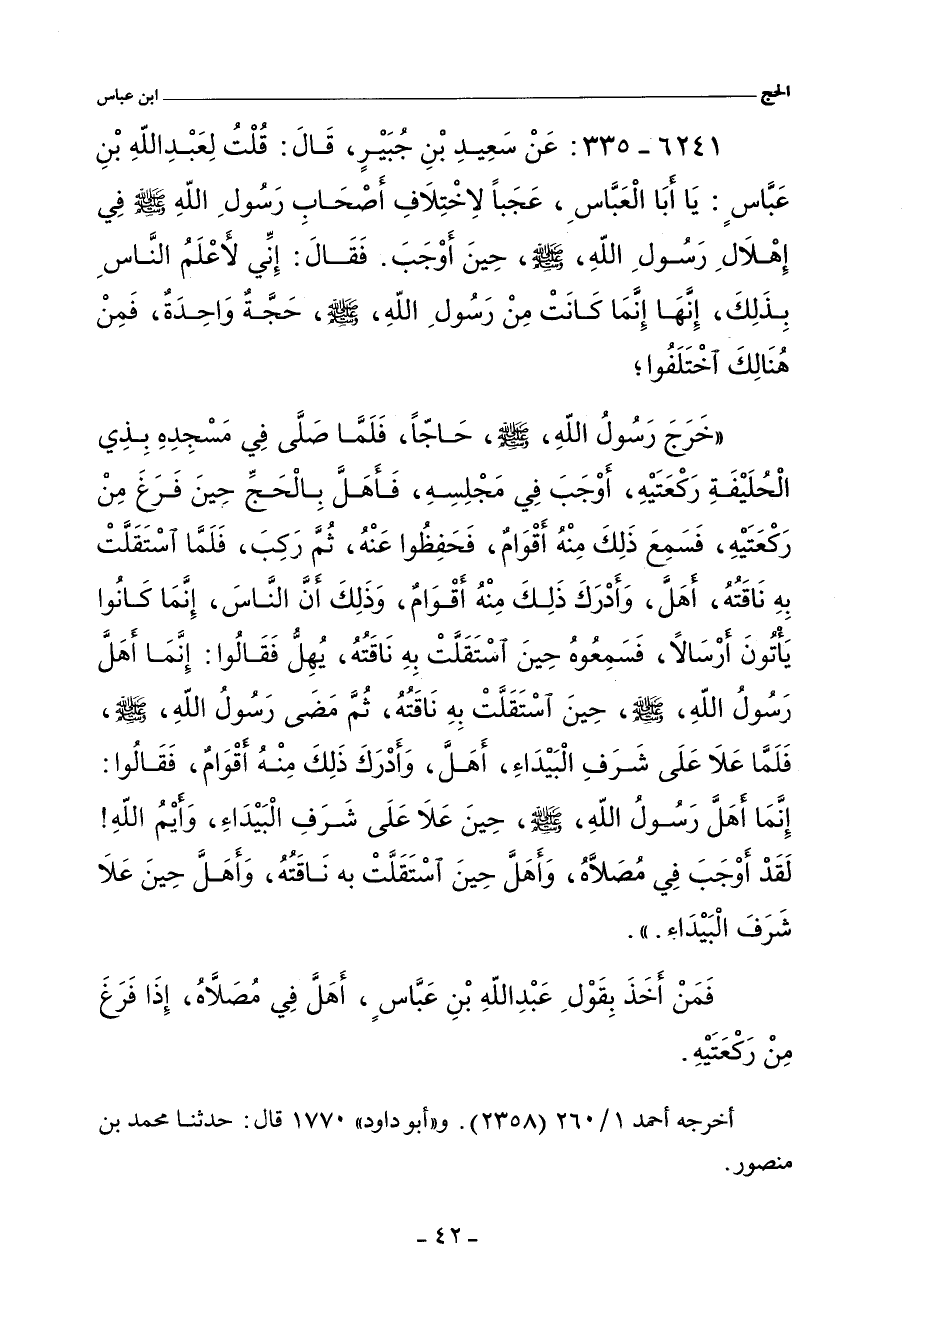 الحج ــــــــــــــــــــ ابن عباس
٦٢٤١ - ٣٣٥: عَنْ سَعِيدِ بْنِ جُبَيْرٍ، قَالَ: قُلْتُ لِعَبْدِاللّٰهِ بْنِ
عَبَّاسٍ: يَا أَبَا الْعَبَّاسِ، عَجَباً لاِخْتِلاَفِ أَصْحَابِ رَسُولِ اللّٰهِ ﷺ فِي
إِهْلاَلِ رَسُولِ اللّٰهِ، ﷺ، حِينَ أَوْجَبَ. فَقَالَ: إِنِّي لأَعْلَمُ النَّاسِ
بِذَلِكَ، إِنَّهَا إِنَّمَا كَانَتْ مِنْ رَسُولِ اللّٰهِ، ﷺ، حَجَّةٌ وَاحِدَةٌ، فَمِنْ
هُنَالِكَ ٱخْتَلَفُوا؛
«خَرَجَ رَسُولُ اللّٰهِ، ﷺ، حَاجّاً، فَلَمَّا صَلَّى فِي مَسْجِدِهِ بِذِي
الْحُلَيْفَةِ رَكْعَتَيْهِ، أَوْجَبَ فِي مَجْلِسِهِ، فَأَهَلَّ بِالْحَجِّ حِينَ فَرَغَ مِنْ
رَكْعَتَيْهِ، فَسَمِعَ ذَلِكَ مِنْهُ أَقْوَامٌ، فَحَفِظُوا عَنْهُ، ثُمَّ رَكِبَ، فَلَمَّا ٱسْتَقَلَّتْ
بِهِ نَاقَتُهُ، أَهَلَّ، وَأَدْرَكَ ذَلِكَ مِنْهُ أَقْوَامٌ، وَذَلِكَ أَنَّ النَّاسَ، إِنَّمَا كَانُوا
يَأْتُونَ أَرْسَالاً، فَسَمِعُوهُ حِينَ ٱسْتَقَلَّتْ بِهِ نَاقَتُهُ، يُهِلُّ فَقَالُوا: إِنَّمَا أَهَلَّ
رَسُولُ اللّٰهِ، ﷺ، حِينَ ٱسْتَقَلَّتْ بِهِ نَاقَتُهُ، ثُمَّ مَضَى رَسُولُ اللّٰهِ، ﷺ،
فَلَمَّا عَلاَ عَلَى شَرَفِ الْبَيْدَاءِ، أَهَلَّ، وَأَدْرَكَ ذَلِكَ مِنْهُ أَقْوَامٌ، فَقَالُوا:
إِنَّمَا أَهَلَّ رَسُولُ اللّٰهِ، ﷺ، حِينَ عَلاَ عَلَى شَرَفِ الْبَيْدَاءِ، وَأَيْمُ اللّٰهِ!
لَقَدْ أَوْجَبَ فِي مُصَلاَّهُ، وَأَهَلَّ حِينَ ٱسْتَقَلَّتْ بِهِ نَاقَتُهُ، وَأَهَلَّ حِينَ عَلاَ
شَرَفَ الْبَيْدَاءِ.».
فَمَنْ أَخَذَ بِقَوْلِ عَبْدِاللّٰهِ بْنِ عَبَّاسٍ، أَهَلَّ فِي مُصَلاَّهُ، إِذَا فَرَغَ
مِنْ رَكْعَتَيْهِ.
أخرجه أحمد ١/ ٢٦٠ (٢٣٥٨). و«أبو داود» ١٧٧٠ قال: حدثنا محمد بن
منصور.
- ٤٢ -